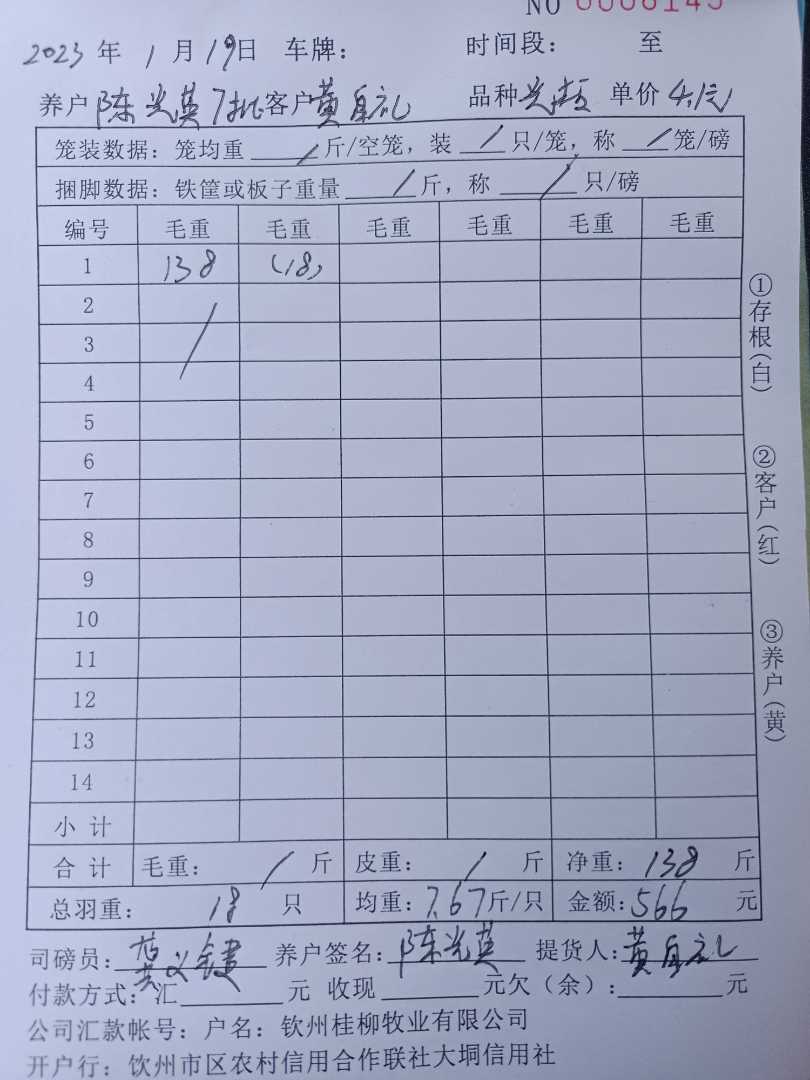 NO 0006145
2023 年 1 月 19 日 车牌： 时间段： 至
养户 陈光英7批 客户 黄自礼 品种 单价 4.1元
笼装数据：笼均重 / 斤/空笼，装 / 只/笼，称 / 笼/磅
捆脚数据：铁筐或板子重量 / 斤，称 / 只/磅
编号 毛重 毛重 毛重 毛重 毛重 毛重
1 138 (18)
2
3
4
5
6
7
8
9
10
11
12
13
14
小 计
合 计 毛重： / 斤 皮重： / 斤 净重：138 斤
总羽重： 18 只 均重：7.67 斤/只 金额：566 元
司磅员： 养户签名：陈光英 提货人：黄自礼
付款方式：汇 元 收现 元欠（余）： 元
公司汇款帐号：户名：钦州桂柳牧业有限公司
开户行：饮州市区农村信用合作联社大垌信用社
①存根（白）
②客户（红）
③养户（黄）